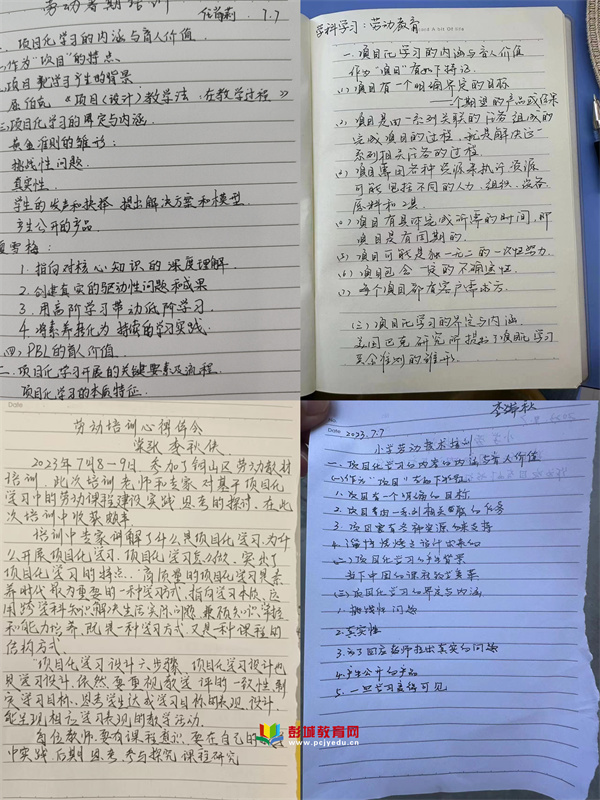 劳动暑期培训
7.7
一、项目化学习的内涵与育人价值
一、作为“项目”的特点
二、项目化学习产生的背景
屈伯克《项目(设计)教学法:在教学过程》
三、项目化学习的界定与内涵
黄金准则的雏形:
挑战性问题
真实性
学生的发声和抉择 提出解决方案和模型
产生公开的产品
夏雪梅:
1. 指向对核心知识的深度理解
2. 创建真实的驱动性问题和成果
3. 用高阶学习带动低阶学习
4. 将素养转化为持续的学习实践
(四) PBL的育人价值
二、项目化学习开展的关键要素及流程
项目化学习的本质特征
学科学习:劳动教育
Record A Bit Of Life
一、项目化学习的内涵与育人价值
作为“项目”有如下特征
(1) 项目有一个明确界定的目标
——一个期望的产品或结果
(2) 项目是由一系列关联的任务组成的
完成项目的过程,就是解决这一
系列相关任务的过程
(3) 项目需要各种资源来执行,资源
可能包括不同的人力、组织、设备
原料和工具
(4) 项目有具体完成所需的时间,即
项目是有周期的
(5) 项目可能是独一无二的一次性努力
(6) 项目包含一定的不确定性
(7) 每个项目都有客户需求方
(三) 项目化学习的界定与内涵
美国巴克研究所提出了项目化学习
黄金准则的雏形
Date
劳动培训心得体会
梁张 李秋侠
2023年7月8-9日,参加了铜山区劳动教材
培训,此次培训老师和专家对基于项目化
学习中的劳动课程建设实践思考的探讨,在此
次培训中收获颇丰
培训中专家讲解了什么是项目化学习,为什
么开展项目化学习,项目化学习怎么做,突出了
项目化学习的特点,“高质量的项目化学习是素
养时代最为重要的一种学习方式,指向学习本质,应
用跨学科知识解决生活实际问题,兼顾知识掌握
和能力培养,既是一种学习方式,又是一种课程的
结构方式
“项目化学习设计六步骤,项目化学习设计也
是学习设计,依然要重视教学评的一致性,制
定学习目标,思考学生达成学习目标的表现,设计
能呈现相应学习表现的教学活动
每位教师,要有课程意识,要在自己的
中实践,后期思考,参与探究课程研究
Date
2023.7.7
小学劳动技术培训
一、项目化学习的内涵与育人价值
(一) 作为“项目”有如下特征
1. 项目有一个明确的目标
2. 项目是由一系列相关联的任务
3. 项目需要各种资源的来支持
(二) 项目化学习的产生背景
当下中国的课程教学变革
(三) 项目化学习的界定与内涵
1. 挑战性问题
2. 真实性
4. 产生公开的产品
彭城教育网
www.pcjyedu.cn